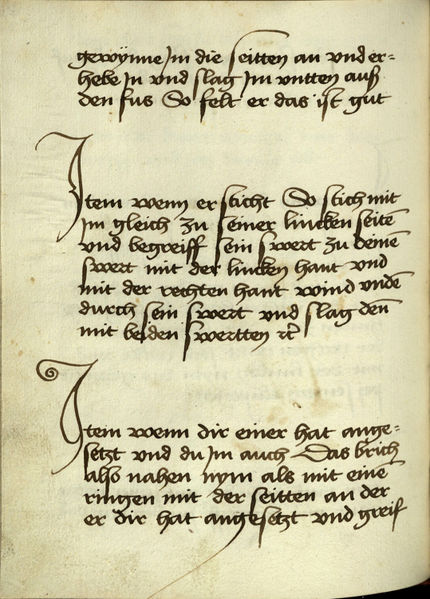 gewynne Jm die seitten an vnd er=
hebe Jn vnd slag Jm vntten auß
den fus So felt er das ist gut
Jtem wenn er sticht So stich mit
Jm gleich zu seiner lincken seitē
vnd begreiff sein swert zu deinē
swert mit der lincken hant vnd
mit der rechten hant wind vndē
durch sein swert vnd slag den̄
mit beiden swertten rc̄
Jtem wenn dir einer hat ange=
setzt vnd du Jm auch Das brich
also nahen nym als mit eine
ringen mit der seitten an der
er dir hat angesetzt vnd greif